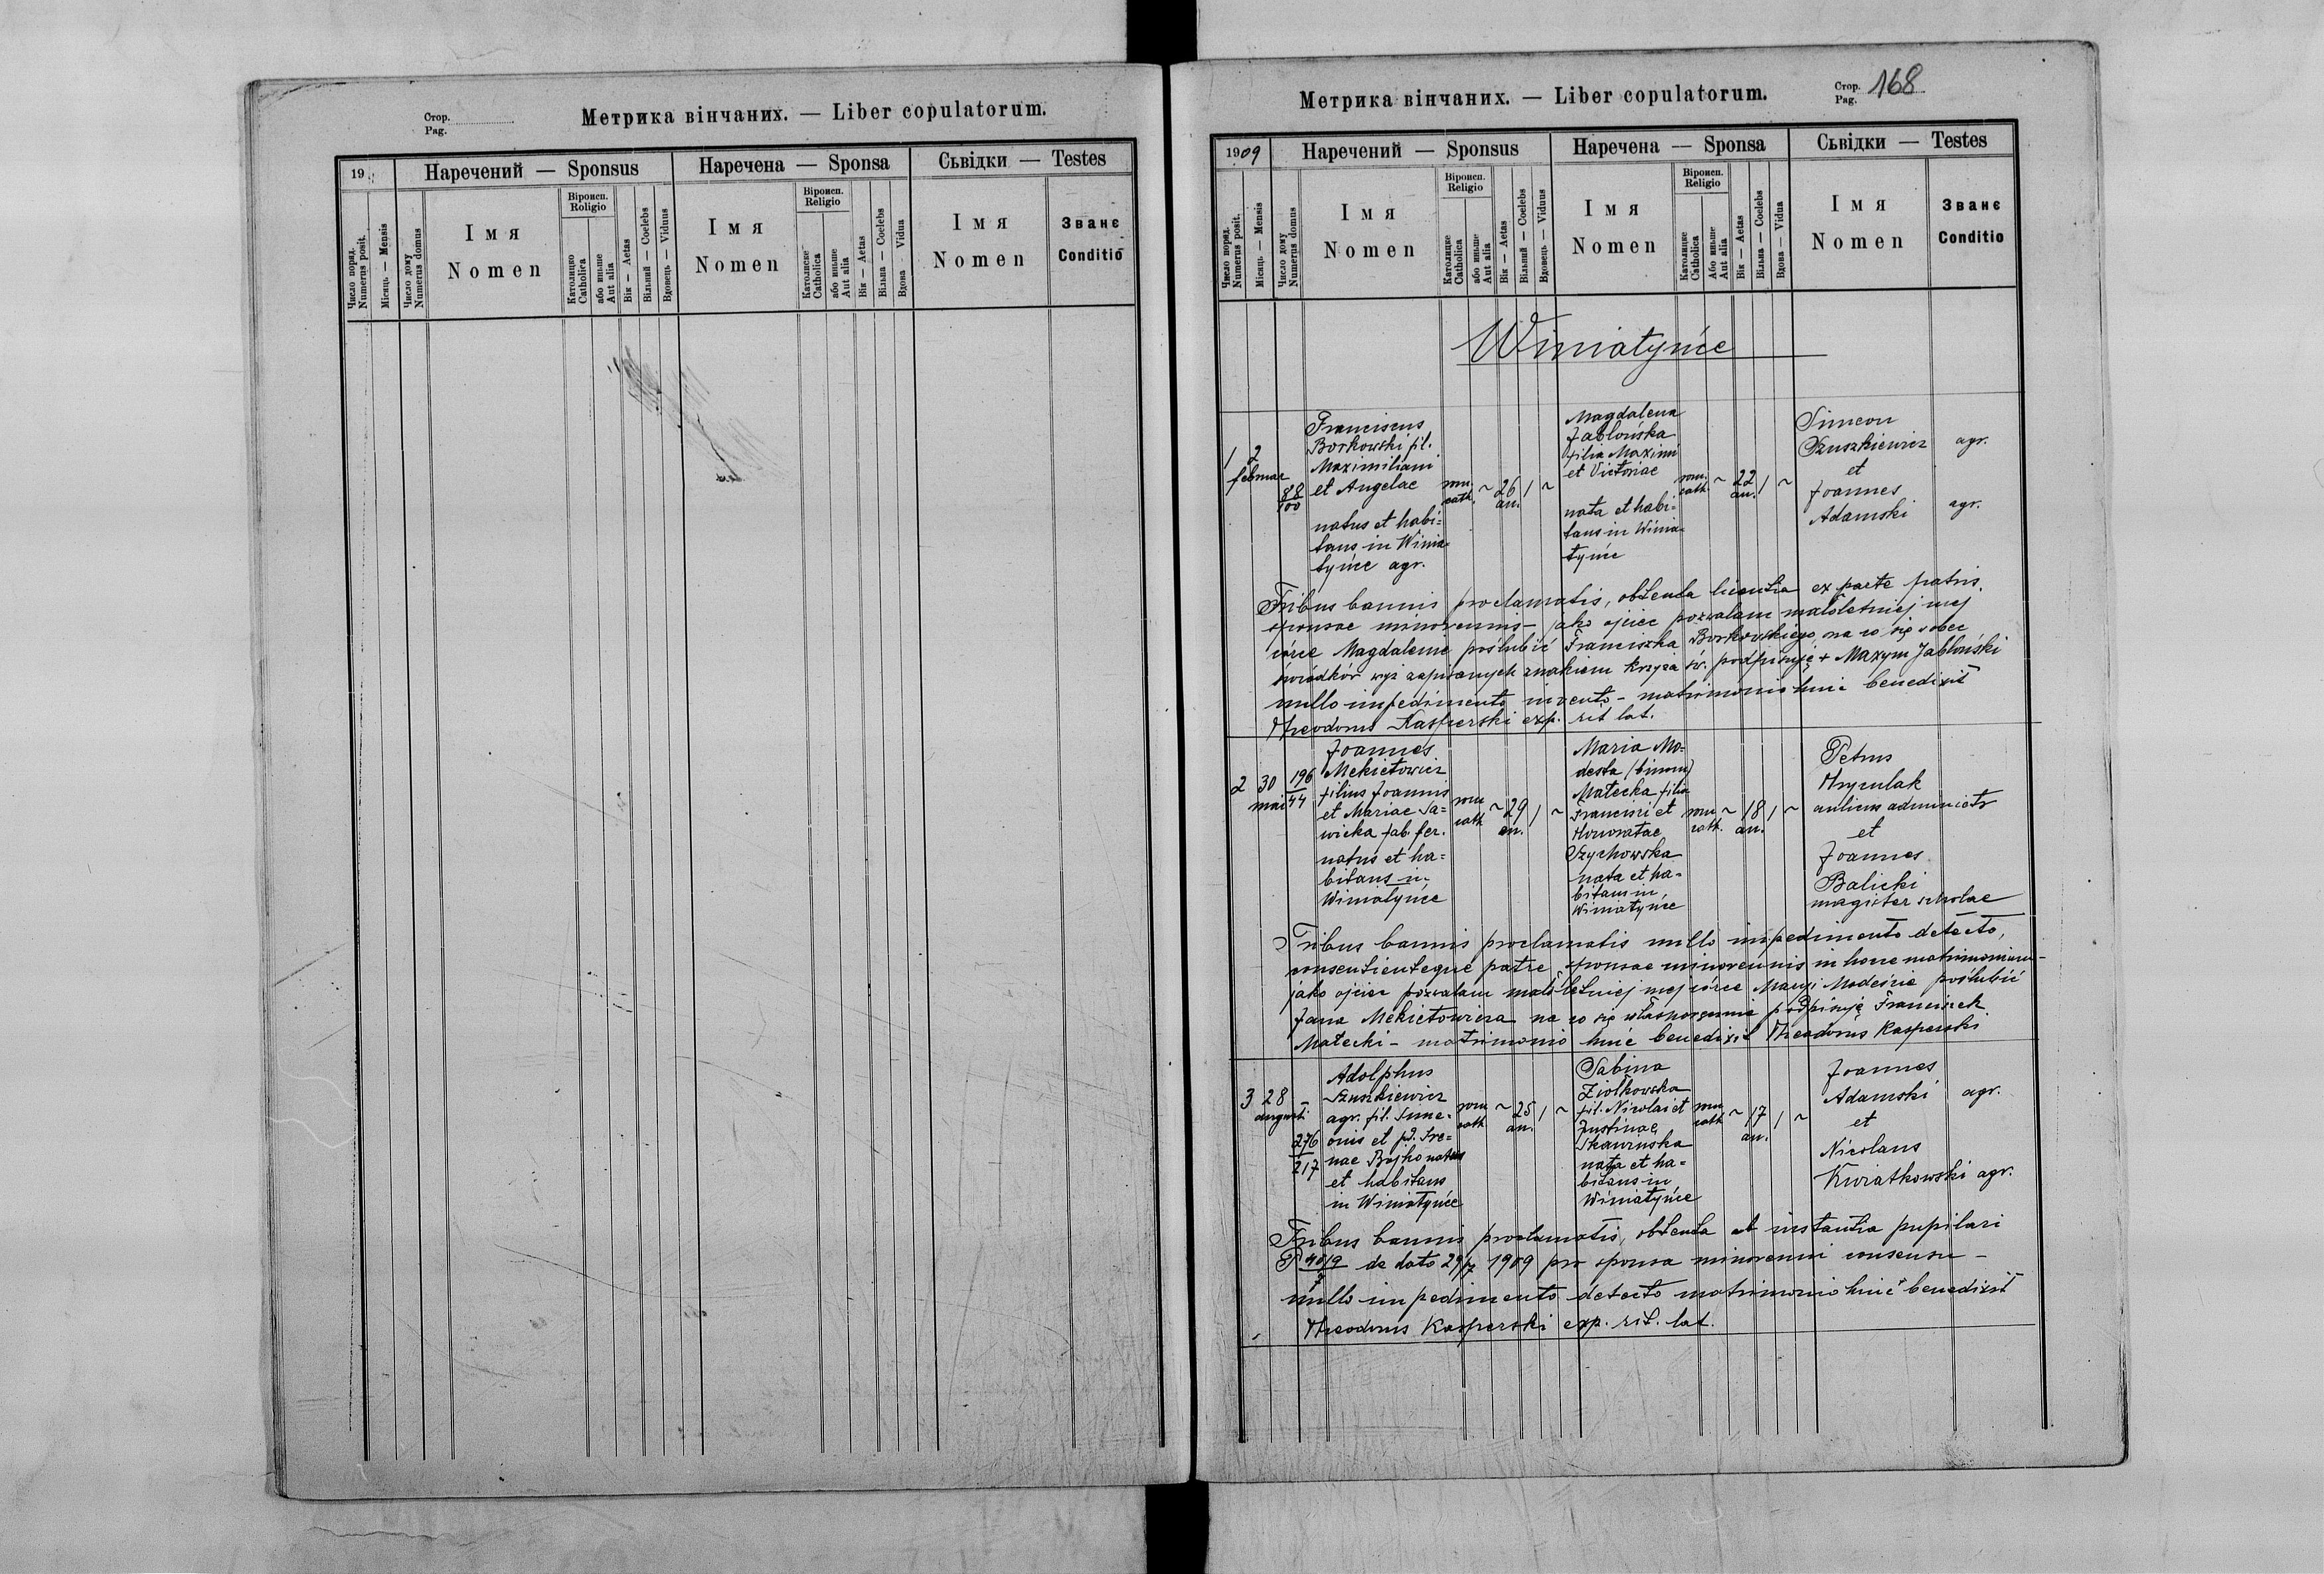 Стор.
Pag.
Метрика вінчаних. — Liber copulatorum.
19
Наречений — Sponsus
Наречена — Sponsa
Сьвідки — Testes
Число поряд.
Numerus posit.
Місяць — Mensis
Число дому
Numerus domus
Імя
Nomen
Віроисп.
Roligio
Католицко
Catholica
або иньше
Aut alia
Вік — Aetas
Вільний — Coelebs
Вдовець — Viduus
Імя
Nomen
Віроисп.
Religio
Католиске
Catholica
або иньше
Aut alia
Вік — Aetas
Вільна — Coelebs
Вдова — Vidua
Імя
Nomen
Званє
Conditio
Метрика вінчаних. — Liber copulatorum.
Стор.
Pag.
168
1909
Наречений — Sponsus
Наречена — Sponsa
Сьвідки — Testes
Число поряд.
Numerus posit.
Місяць — Mensis
Число дому
Numerus domus
Імя
Nomen
Віроисп.
Religio
Католицке
Catholica
або иньше
Aut alia
Вік — Aetas
Вільний — Coelebs
Вдовець — Viduus
Імя
Nomen
Віроисп.
Religio
Католицке
Catholica
Або иньше
Aut alia
Вік — Aetas
Вільна — Coelebs
Вдова — Vidua
Імя
Nomen
Званє
Conditio
Winiatyńce
1 2
februar
88
100
Franciscus
Borkowski fil.
Maximiliani
et Angelae
natus et habi=
tans in Winia=
tyńce agr.
rom.
cath.
~
26
an.
1
~
Magdalena
Jabłońska
filia Maximi
et Victoriae
nata et habi=
tans in Winia=
tyńce
rom.
cath.
~
22
an.
1
~
Simeon
Szuszkiewicz agr.
et
Joannes
Adamski agr.
Tribus bannis proclamatis, obtenta licentia ex parte patris
sponsae minorennis – jako ojciec pozwalam małoletniej mej
córce Magdalenie poślubić Franciszka Borkowskiego, na co się wobec
świadków wyż zapisanych znakiem krzyża św. podpisuję + Maxym Jabłoński
nullo impedimento invento – matrimonio huic benedixit
Theodorus Kasperski exp. rit lat.
2 30
mai
196
44
Joannes
Mekietowicz
filius Joannis
et Mariae Sa=
wicka fab. fer.
natus et ha=
bitans in
Winiatyńce
rom
cath
~
29
an.
1
~
Maria Mo=
desta (binom)
Matecka filia
Francisci et
Honoratae
Szychowska
nata et ha=
bitans in
Winiatyńce
rom
cath.
~
18
an.
1
~
Petrus
Hryculak
et
Joannes
Balicki
magister scholae
Tribus bannis proclamatis nullo impedimento detecto,
consentienteque patre sponsae minorennis in hocce matrimonium –
jako ojciec pozwalam małoletniej mej córce Maryi Modeście poślubić
Jana Mekietowicza na co się własnoręcznie podpisuję Franciszek
Matecki – matrimonio huic benedixit Theodorus Kasperski
3 28
augusti
276
217
Adolphus
Szuszkiewicz
agr. fil. Sime=
onis et p.d. Ire=
nae Bojko natus
et habitans
in Winiatyńce
rom
cath
~
25
an.
1
~
Sabina
Ziołkowska
fil. Nicolai et
Justinae
Skawruska
nata et ha=
bitans in
Winiatyńce
rom
cath
~
17
an.
1
~
Joannes
Adamski agr.
et
Nicolaus
Kwiatkowski agr.
Tribus bannis proclamatis, obtenta ab instantia pupilari
de dato 29/7 1909 pro sponsa minorenni consensu –
nullo impedimento detecto matrimonio huic benedixit
Theodorus Kasperski exp. rit. lat.